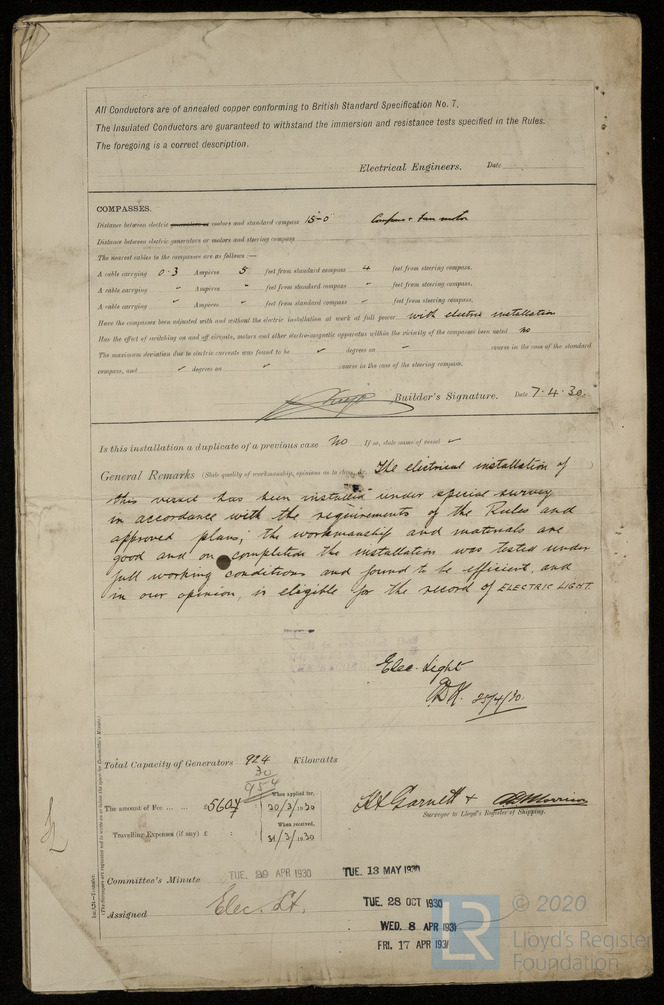 All Conductors are of annealed copper conforming to British Standard Specification No. 7.
The Insulated Conductors are guaranteed to withstand the immersion and resistance tests specified in the Rules.
The foregoing is a correct description.
Electrical Engineers. Date
COMPASSES.
Distance between electric generators or motors and standard compass 15-0 Compass + fan motor
Distance between electric generators or motors and steering compass
The nearest cables to the compasses are as follows :—
A cable carrying 0.3 Ampères 5 feet from standard compass 4 feet from steering compass.
A cable carrying " Ampères " feet from standard compass " feet from steering compass.
A cable carrying " Ampères " feet from standard compass " feet from steering compass.
Have the compasses been adjusted with and without the electric installation at work at full power with electric installation
Has the effect of switching on and off circuits, motors and other electro-magnetic apparatus within the vicinity of the compasses been noted no
The maximum deviation due to electric currents was found to be degrees on course in the case of the standard
compass, and degrees on course in the case of the steering compass.
Builder's Signature. Date 7.4.30.
Is this installation a duplicate of a previous case No If so, state name of vessel
General Remarks (State quality of workmanship, opinions as to class, &c. The electrical installation of
this vessel has been installed under special survey
in accordance with the requirements of the Rules and
approved plans; the workmanship and materials are
good and on completion the installation was tested under
full working conditions and found to be efficient, and
in our opinion, is eligible for the record of ELECTRIC LIGHT.
Elec. Light
25/4/30.
Total Capacity of Generators 924 Kilowatts
30
954
When applied for,
The amount of Fee ... ... £ 30/3/1930
When received,
Travelling Expenses (if any) £ : 31/3/1930
Surveyor to Lloyd's Register of Shipping.
Committee's Minute TUE. 29 APR 1930 TUE. 13 MAY 1930
Assigned Elec. Lt. TUE. 28 OCT 1930
WED. 8 APR 1931
FRI. 17 APR 1931
LR © 2020
Lloyd's Register
Foundation